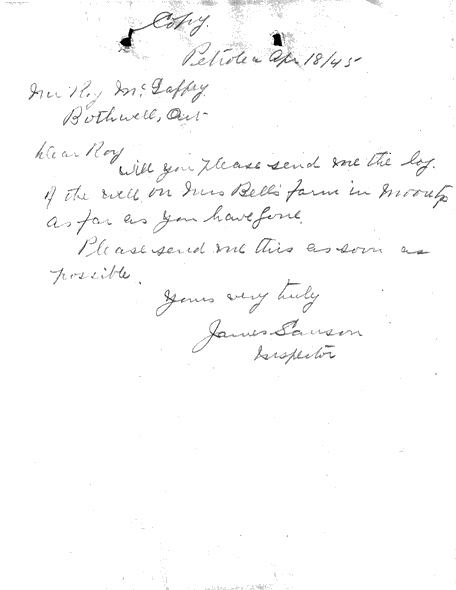 Copy.
Petrolea Apr 18/45
Mr Roy McGaffey
Bothwell, Ont
Dear Roy
will you please send me the log
of the well on Mrs Bell's farm in Moore tp
as far as you have gone.
Please send me this as soon as
possible.
Yours very truly
James Sanson
Inspector